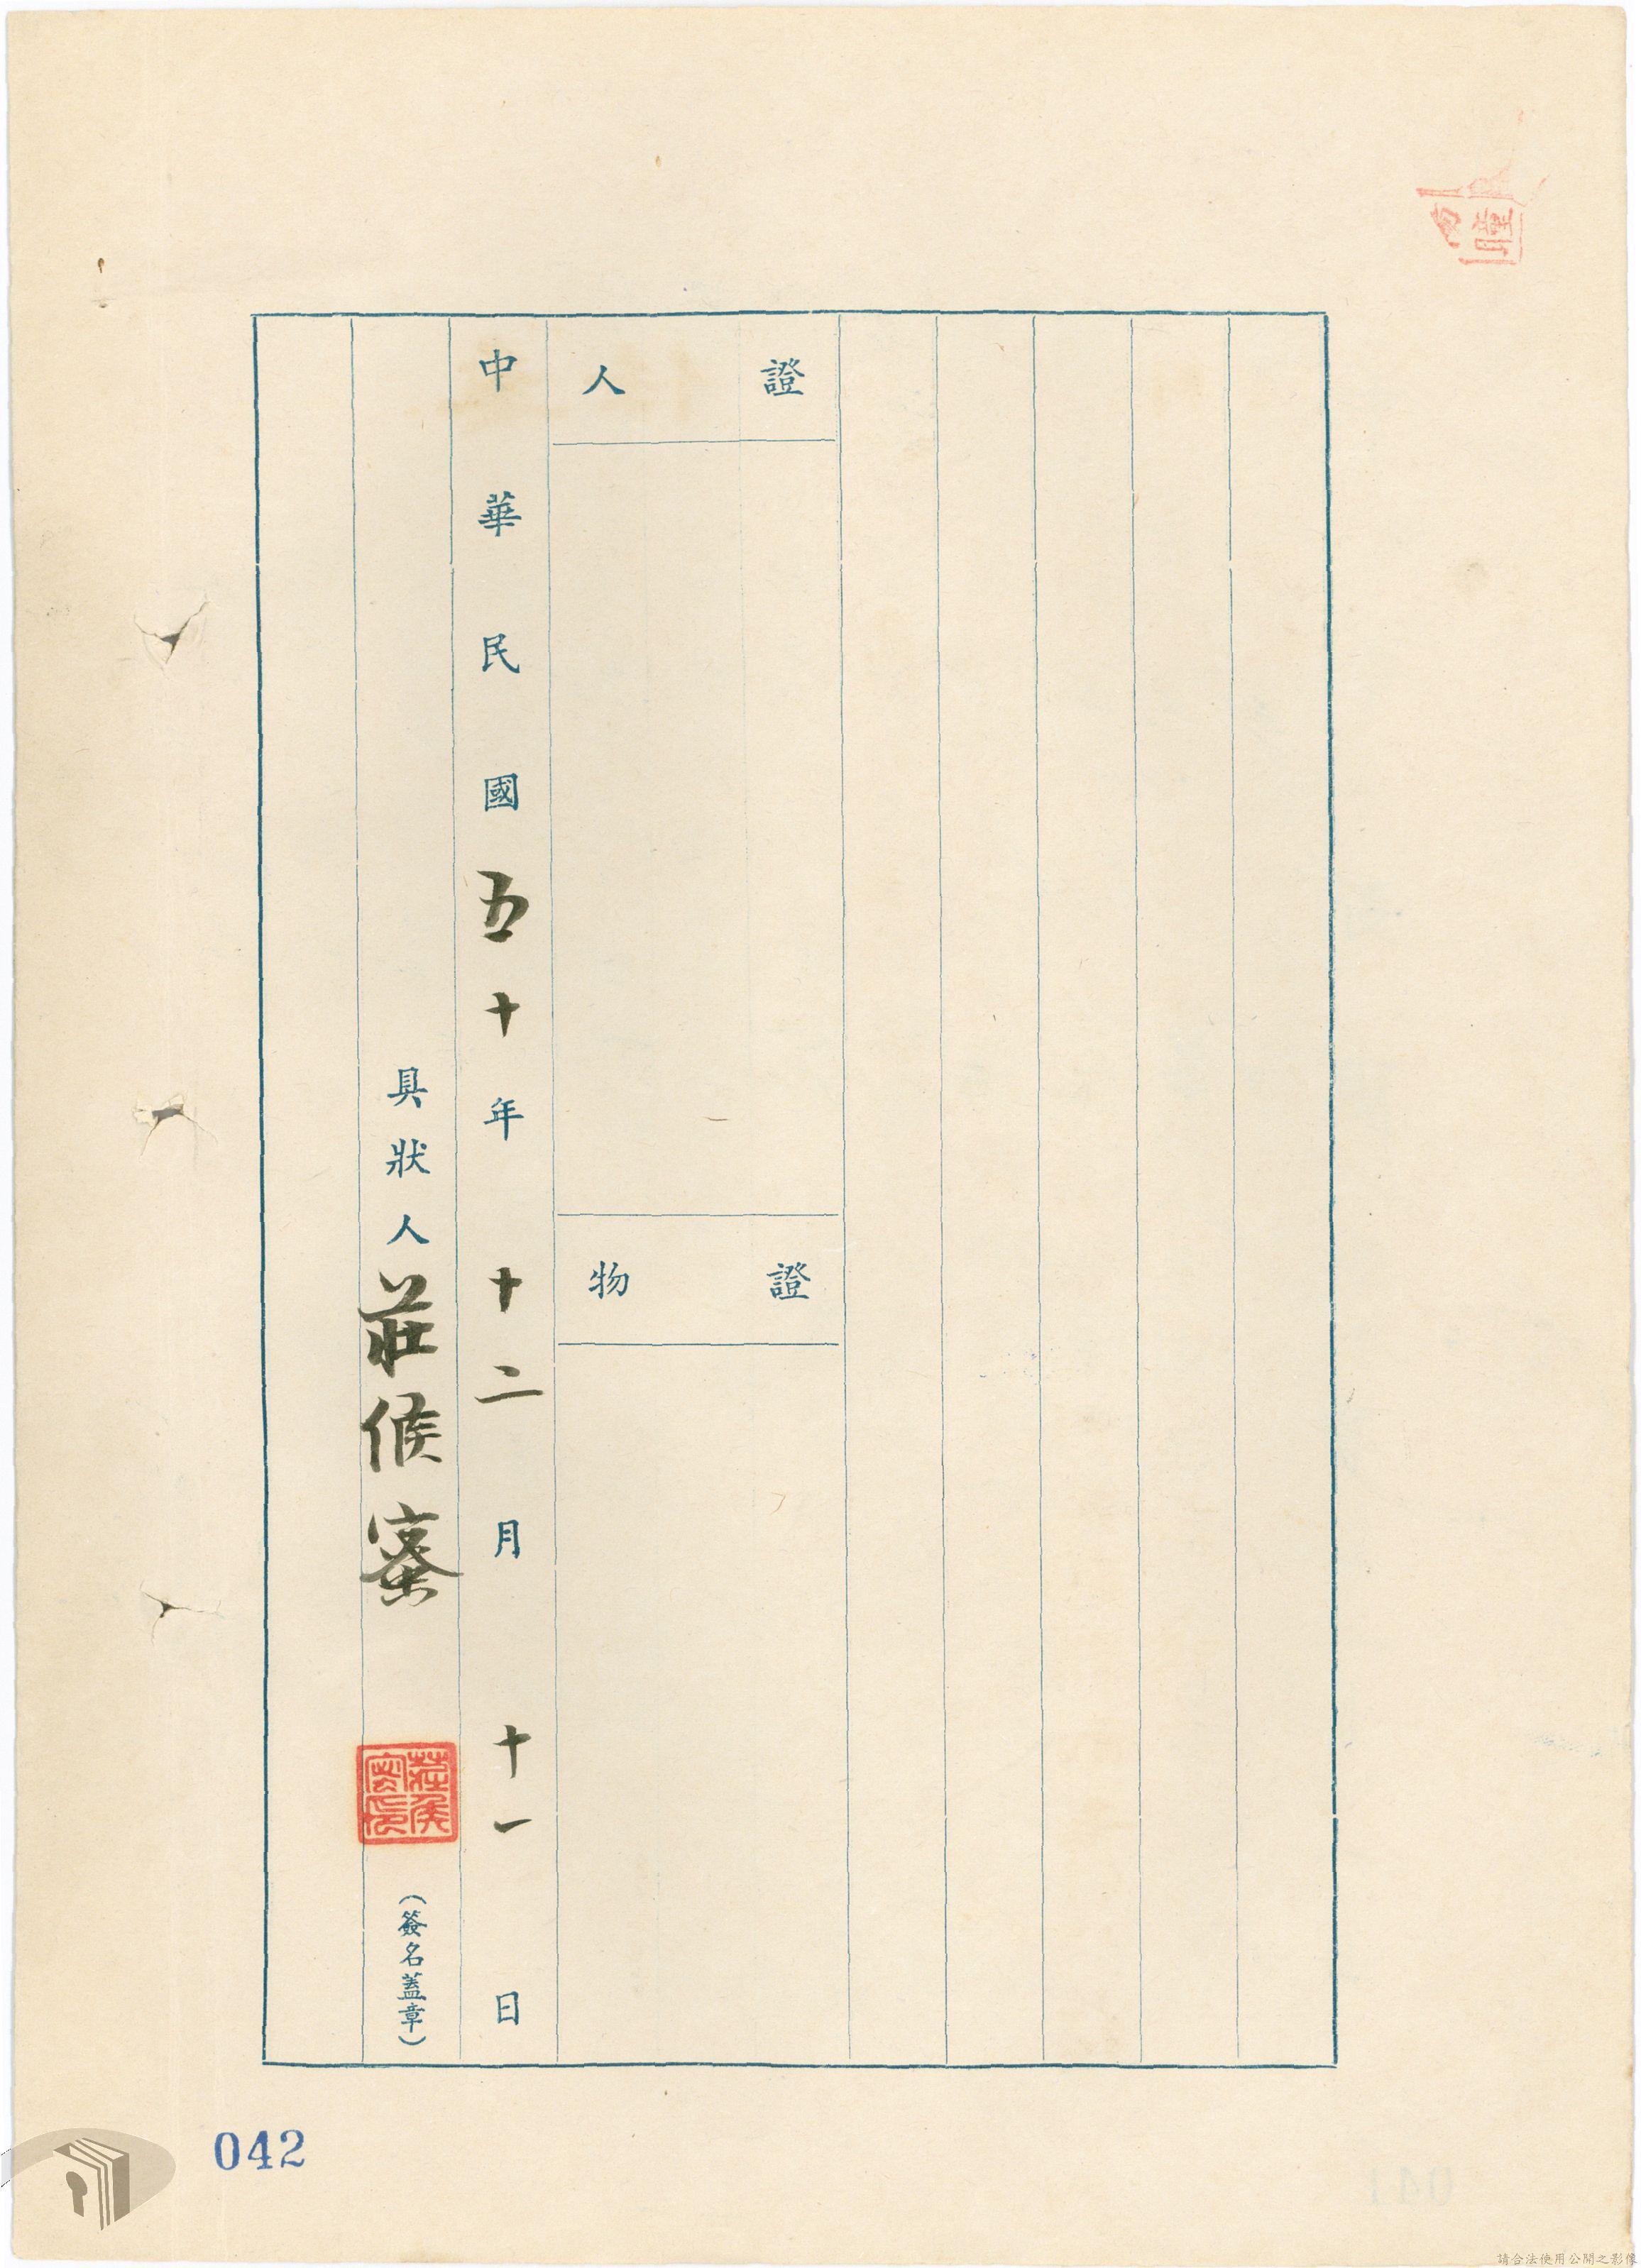 證人
證物
中華民國五十年十二月十一日
具狀人莊候蜜
(簽名蓋章)
042
請合法使用公開之影像